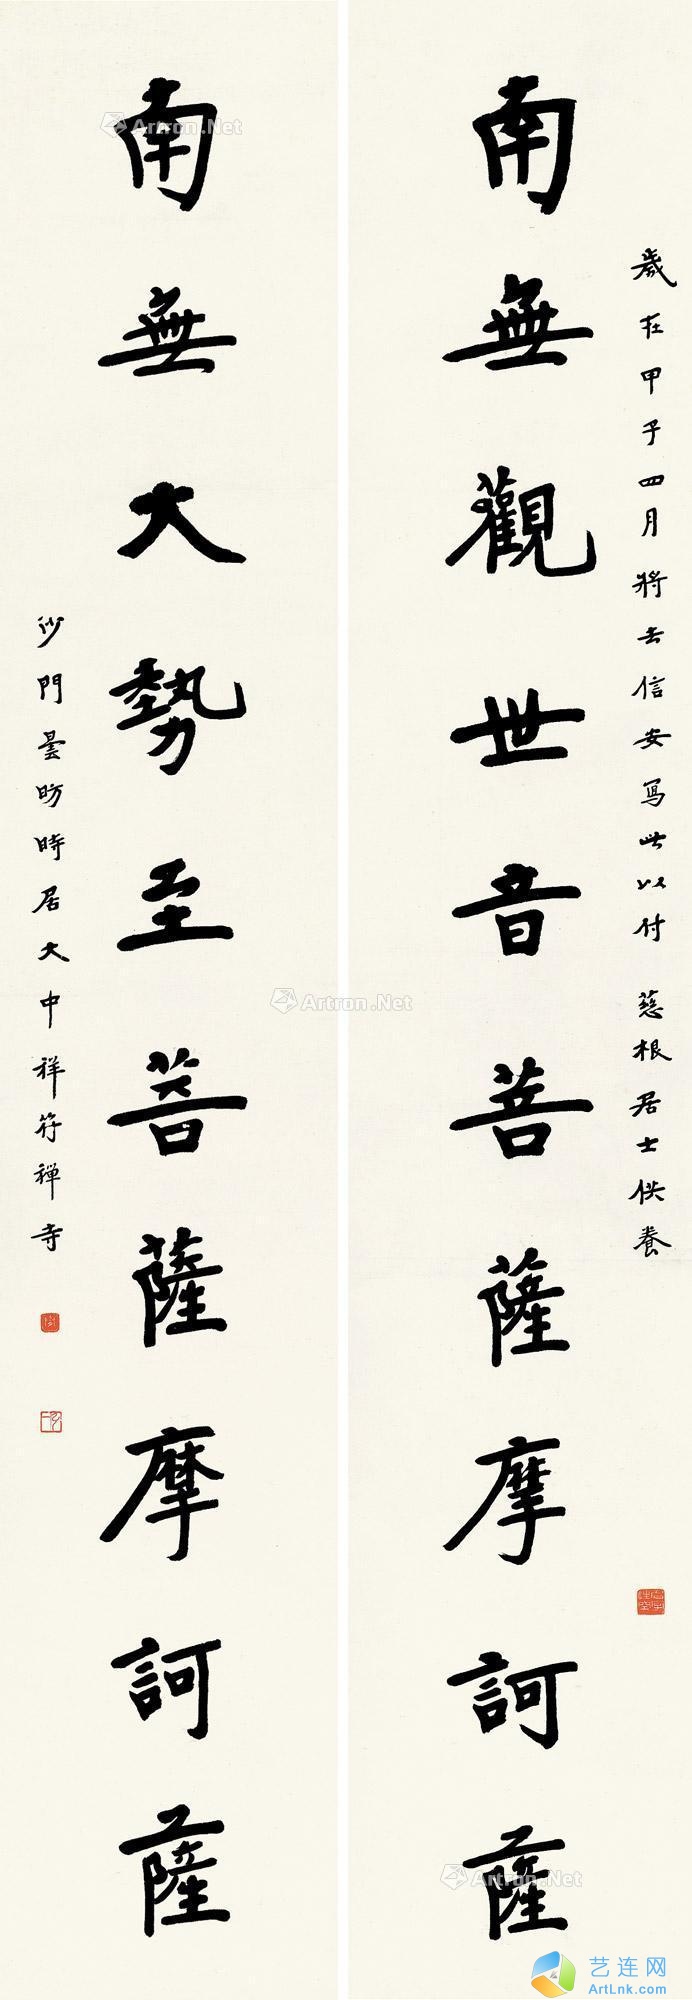 南無觀世音菩薩摩訶薩
歲在甲子四月將去信安寫此以付 慈根居士供養
南無大勢至菩薩摩訶薩
沙門曇昉時居大中祥符禪寺
Artron.Net
Artron.Net
Artron.Net
Artron.Net
艺连网
ArtLnk.com